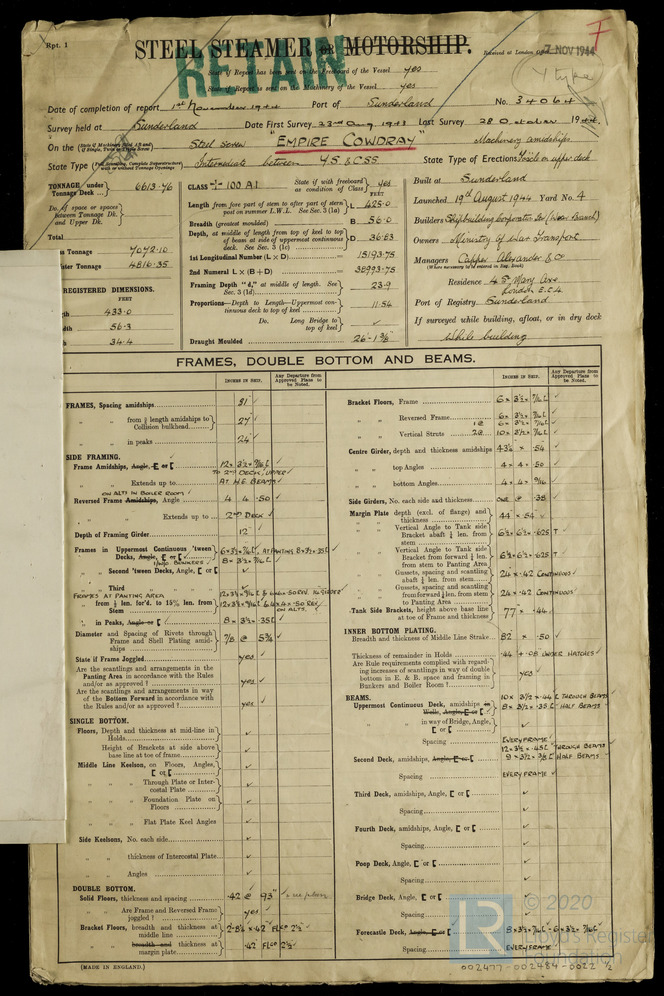 Rpt. 1
STEEL STEAMER OR MOTORSHIP.
RETAIN
Received at London Office 7 NOV 1944
State if Report has been sent on the Freeboard of the Vessel yes
State if Report is sent on the Machinery of the Vessel yes
(Y type)
Date of completion of report 1st November 1944 Port of Sunderland No. 34064
Survey held at Sunderland Date First Survey 23rd Aug. 1943 Last Survey 28 October 1944
On the Steel Screw "EMPIRE COWDRAY" Machinery amidships
State Type Intermediate between Y.S. & C.S.S. State Type of Erections Fo'csle on upper deck
TONNAGE under Tonnage Deck 6613.76
Do. of space or spaces between Tonnage Dk. and Upper Dk.
Total
Tonnage 7042.10
Tonnage 4816.35
REGISTERED DIMENSIONS.
FEET
433.0
56.3
34.4
CLASS 100 A1 State if with freeboard as condition of Class yes
FEET
Length from fore part of stem to after part of stern post on summer L.W.L. See Sec. 3 (1a) L 425.0
Breadth (greatest moulded) B 56.0
Depth, at middle of length from top of keel to top of beam at side of uppermost continuous deck. See Sec. 3 (1c) D 36.83
1st Longitudinal Number (L × D) 15193.75
2nd Numeral L × (B + D) 38993.75
Framing Depth "d," at middle of length. See Sec. 3 (1d) 23.9
Proportions—Depth to Length—Uppermost continuous deck to top of keel 11.54
Do. Long Bridge to top of keel
Draught Moulded 26-1⅜"
Built at Sunderland
Launched 19th August 1944 Yard No. 4
Builders Shipbuilding Corporation Ltd (Wear Branch)
Owners Ministry of War Transport
Managers Capper Alexander & Co
(Where necessary to be entered in Reg. Book)
Residence St. Mary Axe London E.C.4
Port of Registry Sunderland
If surveyed while building, afloat, or in dry dock
While building
FRAMES, DOUBLE BOTTOM AND BEAMS.
INCHES IN SHIP. Any Departure from Approved Plans to be Noted.
FRAMES, Spacing amidships 31
" " from ⅗ length amidships to Collision bulkhead 27
" " in peaks 24
SIDE FRAMING.
Frame Amidships, Angle, E or [ 12 × 3½ ×
" " Extends up to TO 2ND DECK, UPPER AT H.E. BEAMS
ON ALTS IN BOILER ROOM
Reversed Frame Amidships, Angle 4 4 .50
" " Extends up to 2ND DECK
Depth of Framing Girder 12
Frames in Uppermost Continuous 'tween Decks, Angle, E or [ AT PANTING 8×3½×.35
" " Second 'tween Decks, Angle, [ or [
" " Third
FRAMES AT PANTING AREA
" " from ⅕ len. for'd. to 15% len. from Stem
" " in Peaks, Angle or [ 8 × 3½ .35
Diameter and Spacing of Rivets through Frame and Shell Plating amidships 7/8 @ 5¾
State if Frame Joggled yes
Are the scantlings and arrangements in the Panting Area in accordance with the Rules and/or as approved? yes
Are the scantlings and arrangements in way of the Bottom Forward in accordance with the Rules and/or as approved? yes
SINGLE BOTTOM.
Floors, Depth and thickness at mid-line in Holds
Height of Brackets at side above base line at toe of frame
Middle Line Keelson, on Floors, Angles, [ or [
" " Through Plate or Intercostal Plate
" " Foundation Plate on Floors
" " Flat Plate Keel Angles
Side Keelsons, No. each side
" " thickness of Intercostal Plate
" " Angles
DOUBLE BOTTOM.
Solid Floors, thickness and spacing .42 @ 93"
" " Are Frame and Reversed Frame joggled? yes
Bracket Floors, breadth and thickness at middle line
" " breadth and thickness at margin plate .42 FLGD 2½
INCHES IN SHIP. Any Departure from Approved Plans to be Noted.
Bracket Floors, Frame 6 × 3½ ×
" " Reversed Frame 6 × 3½ ×
" " Vertical Struts 10 × 3½ ×
Centre Girder, depth and thickness amidships 43½ × .54
" " top Angles 4 × 4 × .50
" " bottom Angles 4 × 4 × 9/16
Side Girders, No. each side and thickness ONE @ .38
Margin Plate depth (excl. of flange) and thickness 44 × .54
" " Vertical Angle to Tank side Bracket abaft ¼ len. from stem 6½ × 6½ × .625 T
" " Vertical Angle to Tank side Bracket from forward ¼ len. from stem to Panting Area 6½ × 6½ × .625 T
" " Gussets, spacing and scantlings abaft ¼ len. from stem 24 × .42 CONTINUOUS
" " Gussets, spacing and scantlings from forward ¼ len. from stem to Panting Area 24 × .42 CONTINUOUS
Tank Side Brackets, height above base line at toe of Frame and thickness 77 × .44
INNER BOTTOM PLATING.
Breadth and thickness of Middle Line Strake 82 × .50
Thickness of remainder in Holds .44 + .08 UNDER HATCHES
Are Rule requirements complied with regarding increases of scantlings in way of double bottom in E. & B. space and framing in Bunkers and Boiler Room? yes
BEAMS.
Uppermost Continuous Deck, amidships in Wells, Angle, E or [ 10 × 3½ × .44 THROUGH BEAMS
8 × 3½ × .35 HALF BEAMS
" " in way of Bridge, Angle, [ or [
" " Spacing EVERY FRAME
Second Deck, amidships, Angle, E or [ 12 × 3½ × .45 THROUGH BEAMS
9 × 3½ × 3/8 HALF BEAMS
Spacing EVERY FRAME
Third Deck, amidships, Angle, [ or [
Spacing
Fourth Deck, amidships, Angle, [ or [
Spacing
Poop Deck, Angle, [ or [
Spacing
Bridge Deck, Angle, [ or [
Spacing
Forecastle Deck, Angle, E or [
Spacing EVERY FRAME
(MADE IN ENGLAND.)
LR
© 2020
Lloyd's Register
Foundation
002477-002484-0022 ½